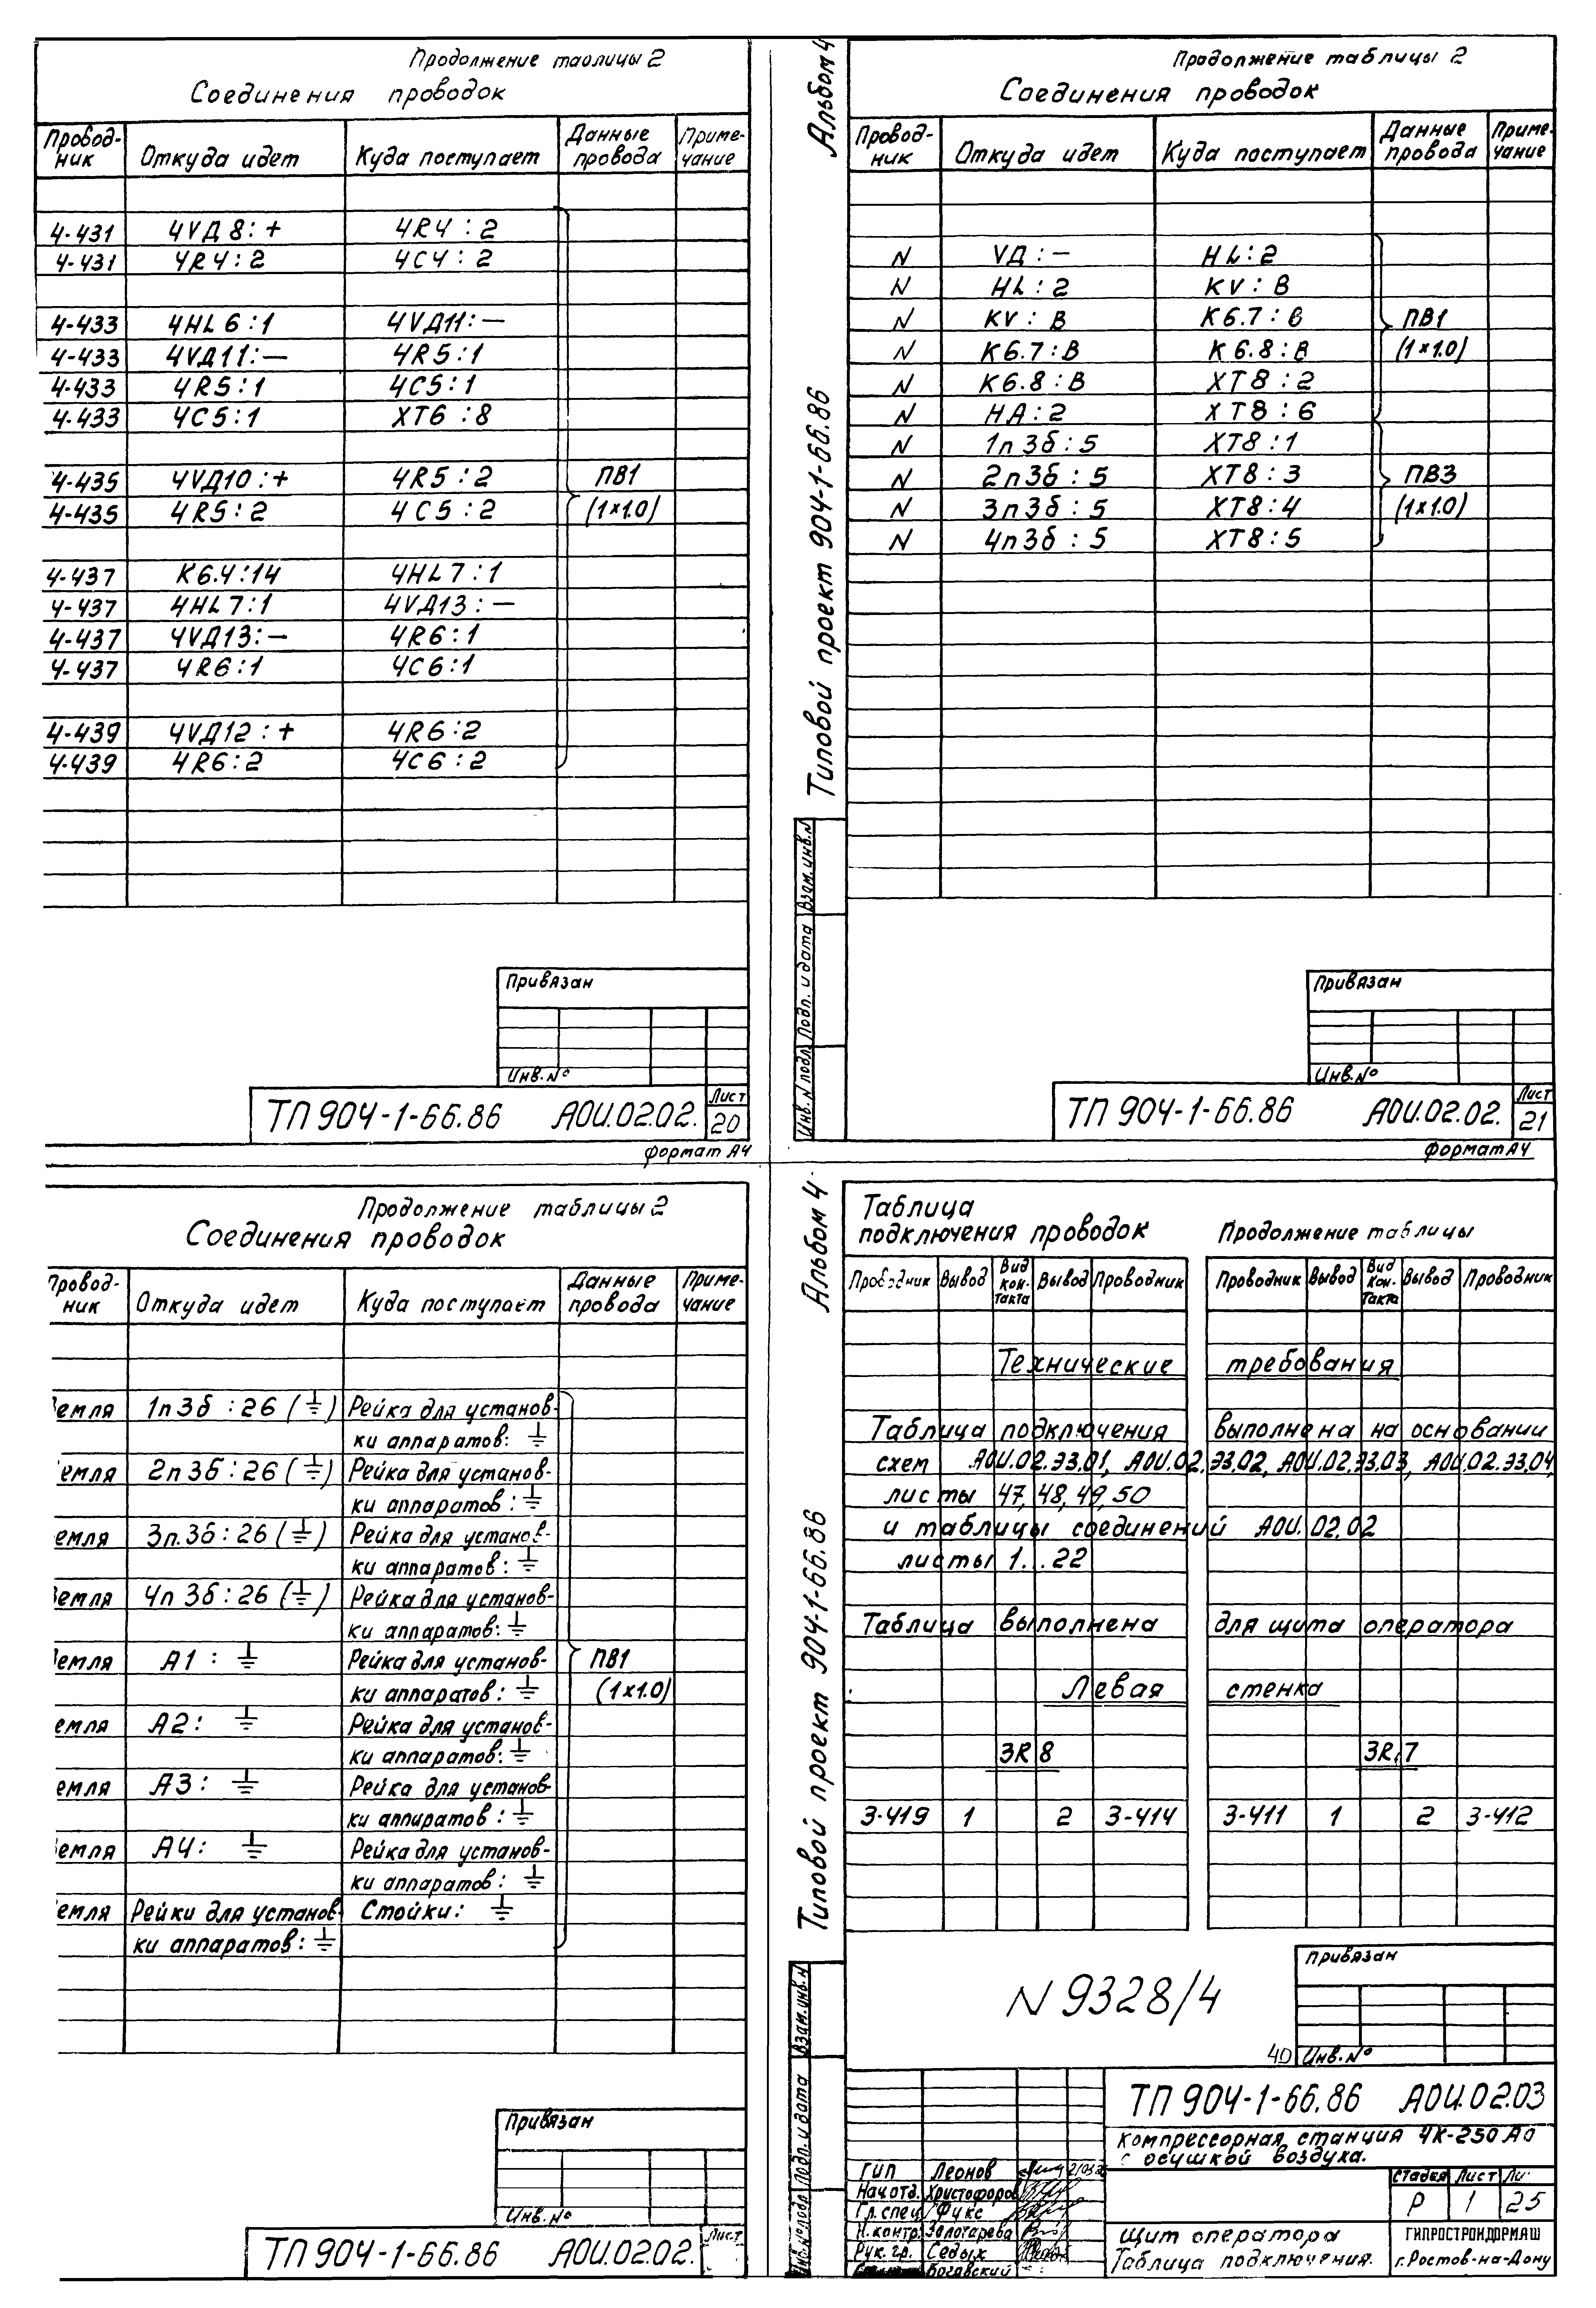 Продолжение таблицы 2
Соединения проводок
Провод-ник Откуда идет Куда поступает Данные провода Приме-чание
4-431 4VД8:+ 4R4:2
4-431 4R4:2 4C4:2
4-433 4HL6:1 4VД11:—
4-433 4VД11:— 4R5:1
4-433 4R5:1 4C5:1
4-433 4C5:1 XT6:8
4-435 4VД10:+ 4R5:2 ПВ1
4-435 4R5:2 4C5:2 (1×1.0)
4-437 K6.4:14 4HL7:1
4-437 4HL7:1 4VД13:—
4-437 4VД13:— 4R6:1
4-437 4R6:1 4C6:1
4-439 4VД12:+ 4R6:2
4-439 4R6:2 4C6:2
Привязан
Инв.№
ТП 904-1-66.86 АОИ.02.02. Лист 20
формат А4
Альбом 4
Типовой проект 904-1-66.86
Взам.инв.N
Подп. и дата
Инв.N подл.
Продолжение таблицы 2
Соединения проводок
Провод-ник Откуда идет Куда поступает Данные провода Приме-чание
N VД:— HL:2
N HL:2 KV:B
N KV:B K6.7:B ПВ1
N K6.7:B K6.8:B (1×1.0)
N K6.8:B XT8:2
N HA:2 XT8:6
N 1п3б:5 XT8:1
N 2п3б:5 XT8:3 ПВ3
N 3п3б:5 XT8:4 (1×1.0)
N 4п3б:5 XT8:5
Привязан
Инв.№
ТП 904-1-66.86 АОИ.02.02. Лист 21
формат А4
Продолжение таблицы 2
Соединения проводок
Провод-ник Откуда идет Куда поступает Данные провода Приме-чание
емля 1п3б:26(⏚) Рейка для установ-
ки аппаратов: ⏚
емля 2п3б:26(⏚) Рейка для установ-
ки аппаратов: ⏚
емля 3п.3б:26(⏚) Рейка для установ-
ки аппаратов: ⏚
емля 4п3б:26(⏚) Рейка для установ-
ки аппаратов: ⏚
емля А1: ⏚ Рейка для установ- ПВ1
ки аппаратов: ⏚ (1×1.0)
емля А2: ⏚ Рейка для установ-
ки аппаратов: ⏚
емля А3: ⏚ Рейка для установ-
ки аппаратов: ⏚
емля А4: ⏚ Рейка для установ-
ки аппаратов: ⏚
емля Рейки для установ- Стойки: ⏚
ки аппаратов: ⏚
Привязан
Инв.№
ТП 904-1-66.86 АОИ.02.02. Лист
Альбом 4
Типовой проект 904-1-66.86
Взам.инв.N
Подп. и дата
Инв.№ подл.
Таблица
подключения проводок Продолжение таблицы
Проводник Вывод Вид кон-такта Вывод Проводник Проводник Вывод Вид кон-такта Вывод Проводник
Технические требования
Таблица подключения выполнена на основании
схем АОИ.02.Э3.01, АОИ.02.Э3.02, АОИ.02.Э3.03, АОИ.02.Э3.04,
листы 47, 48, 49, 50
и таблицы соединений АОИ.02.02
листы 1...22
Таблица выполнена для щита оператора
Левая стенка
3R8 3R7
3-419 1 2 3-414 3-411 1 2 3-412
Привязан
N 9328/4
40 Инв.№
ТП 904-1-66.86 АОИ.02.03
Компрессорная станция 4К-250А0
с осушкой воздуха.
ГИП Леонов
Нач.отд. Христофоров
Гл.спец. Фукс
Н.контр. Золотарева
Рук.гр. Седых
Богавский
Стадия Лист
Р 1 25
Щит оператора
Таблица подключения.
ГИПРОСТРОЙДОРМАШ
г.Ростов-на-Дону